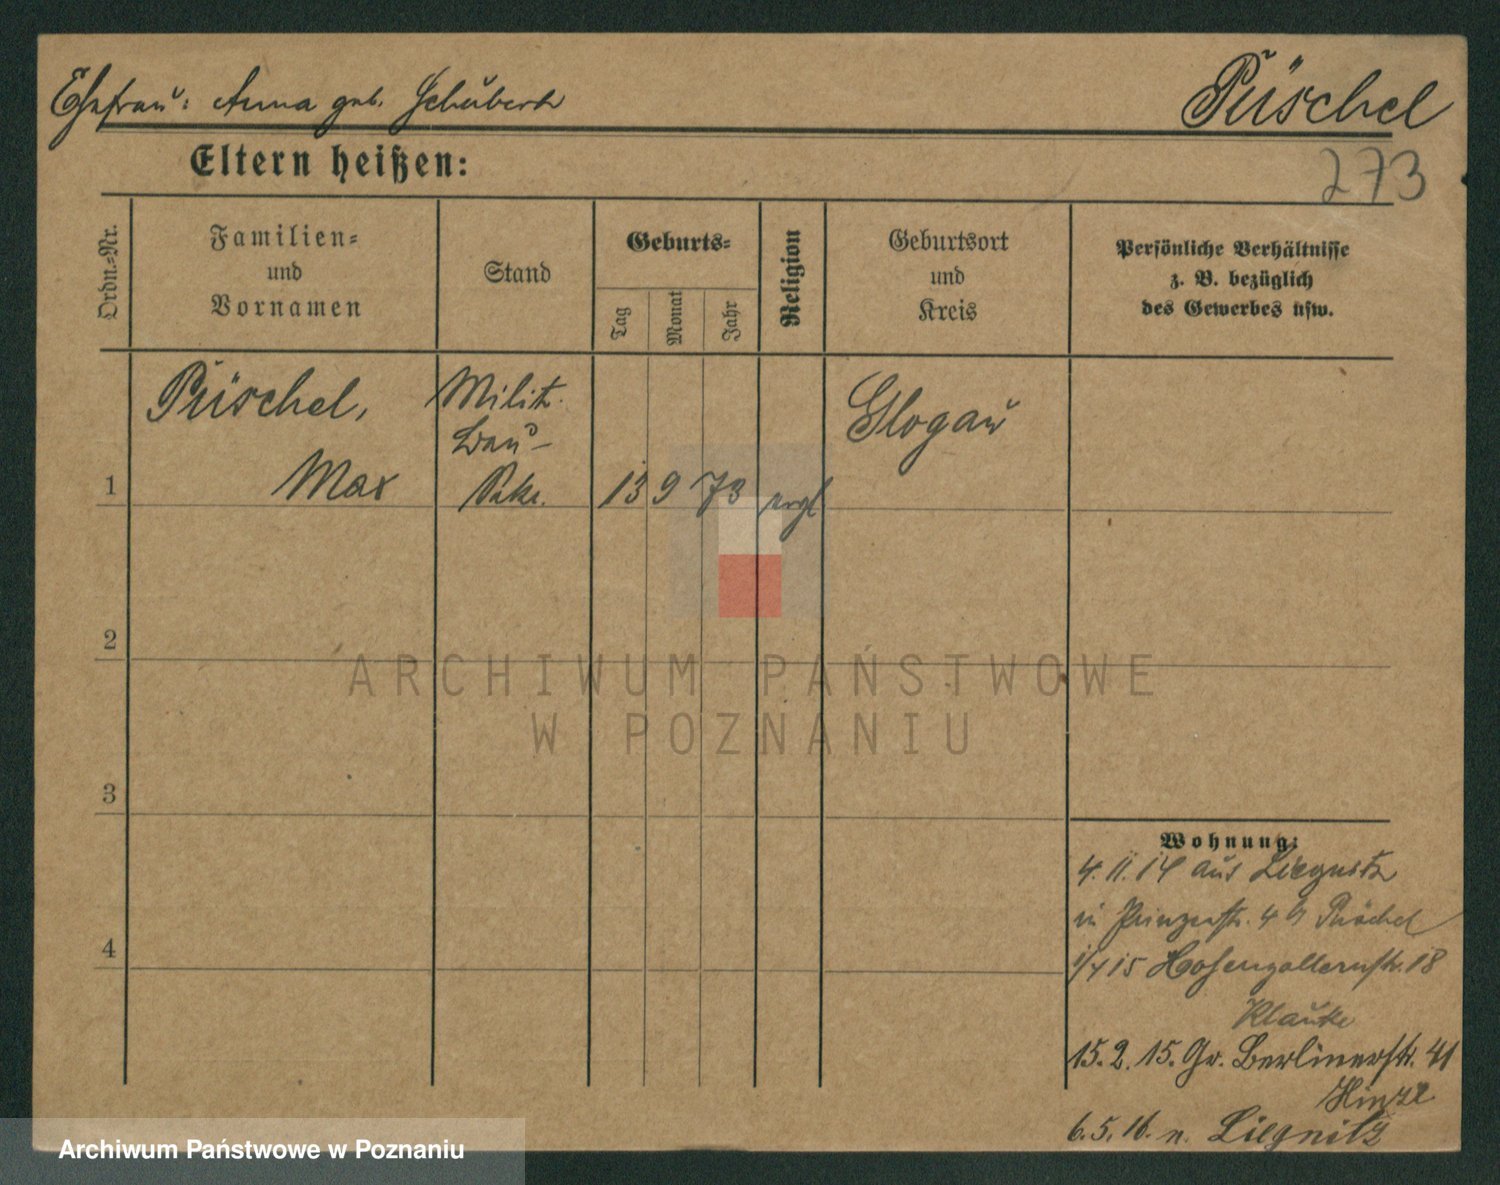 Ehefrau: Anna geb. Schubert
Püschel
273
Eltern heißen:
Ordn.-Nr.
Familien-
und
Vornamen
Stand
Geburts-
Tag
Monat
Jahr
Religion
Geburtsort
und
Kreis
Persönliche Verhältnisse
z. B. bezüglich
des Gewerbes usw.
1
Püschel,
Max
Milit.
Bau-
13 9 73
Glogau
2
3
4
ARCHIWUM PAŃSTWOWE
W POZNANIU
Wohnung:
4. 11. 14 aus Liegnitz
in Prinzenstr. 49 Püschel
15 Hohenzollernstr. 18
15. 2. 15. Gr. Berlinerstr. 41
Hinze
6. 5. 16. n. Liegnitz
Archiwum Państwowe w Poznaniu